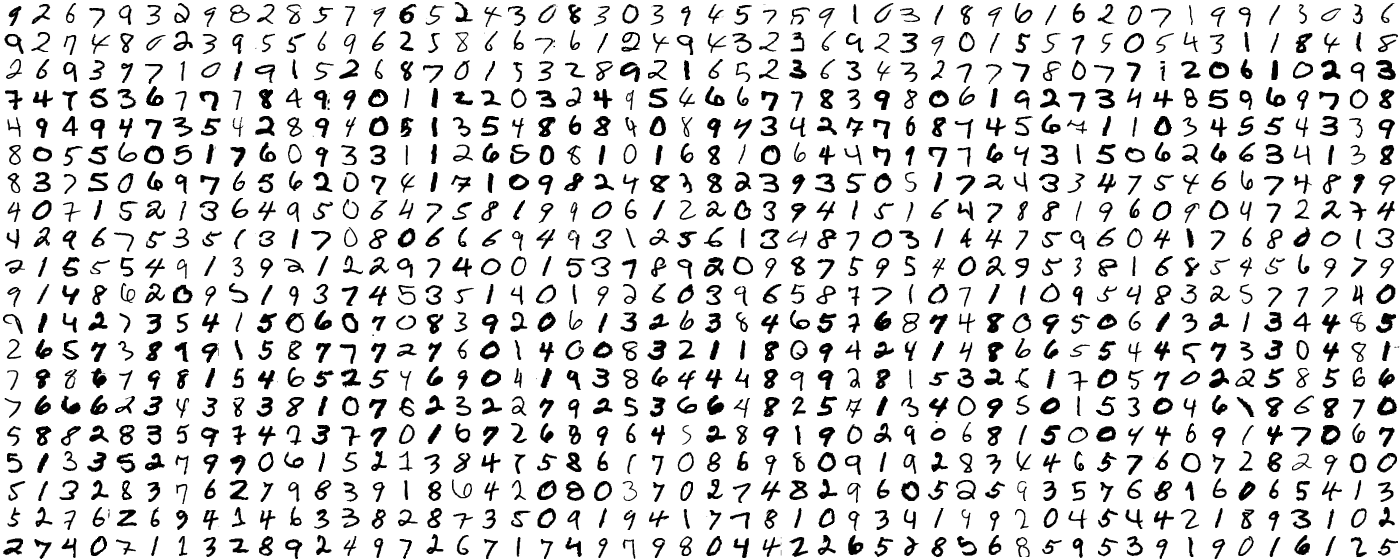 9 2 6 7 9 3 2 9 8 2 8 5 7 9 6 5 2 4 3 0 8 3 0 3 9 4 5 7 5 9 1 0 3 1 8 9 6 1 6 2 0 7 1 9 9 1 3 0 3 6
9 2 7 4 8 0 2 3 9 5 5 6 9 6 2 5 8 6 6 7 6 1 2 4 9 4 3 2 3 6 9 2 3 9 0 1 5 5 7 5 0 5 4 3 1 1 8 4 1 8
2 6 9 3 7 7 1 0 1 9 1 5 2 6 8 7 0 1 5 3 2 8 9 2 1 6 5 2 3 6 3 4 3 2 7 7 7 8 0 7 7 1 2 0 6 1 0 2 9 3
7 4 7 5 3 6 7 7 7 8 4 9 9 0 1 1 2 2 0 3 2 4 9 5 4 6 6 7 7 8 3 9 8 0 6 1 9 2 7 3 4 4 8 5 9 6 9 7 0 8
4 9 4 9 4 7 3 5 4 2 8 9 4 0 5 1 3 5 4 8 6 8 9 0 8 9 4 3 4 2 7 7 6 8 7 4 5 6 7 1 1 0 3 4 5 5 4 3 3 9
8 0 5 5 6 0 5 1 7 6 0 9 3 3 1 1 2 6 5 0 8 1 0 1 6 8 1 0 6 4 4 7 9 7 7 6 4 3 1 5 0 6 2 6 6 3 4 1 3 8
8 3 7 5 0 6 9 7 6 5 6 2 0 7 4 1 7 1 0 9 8 2 4 8 3 8 2 3 9 3 5 0 5 1 7 2 4 3 3 4 7 5 4 6 6 7 4 8 9 9
4 0 7 1 5 2 1 3 6 4 9 5 0 6 4 7 5 8 1 9 9 0 6 1 2 2 0 3 9 4 1 5 1 6 4 7 8 8 1 9 6 0 9 0 4 7 2 2 7 4
4 2 9 6 7 5 3 5 1 3 1 7 0 8 0 6 6 6 9 4 9 3 1 2 5 6 1 3 4 8 7 0 3 1 4 4 7 5 9 6 0 4 1 7 6 8 0 0 1 3
2 1 5 5 5 4 9 1 3 9 2 1 2 2 9 7 4 0 0 1 5 3 7 8 9 2 0 9 8 7 5 9 5 4 0 2 9 5 3 8 1 6 8 5 4 5 6 9 7 9
9 1 4 8 6 2 0 9 5 1 9 3 7 4 5 3 5 1 4 0 1 9 2 6 0 3 9 6 5 8 7 7 1 0 7 1 1 0 9 5 4 8 3 2 5 7 7 7 4 0
9 1 4 2 7 3 5 4 1 5 0 6 0 7 0 8 3 9 2 0 6 1 3 2 6 3 8 4 6 5 7 6 8 7 4 8 0 9 5 0 6 1 3 2 1 3 4 4 8 5
2 6 5 7 3 8 9 9 1 5 8 7 7 7 2 7 6 0 1 4 0 0 8 3 2 1 1 8 0 9 4 2 4 1 4 8 6 6 5 5 4 4 5 7 3 3 0 4 8 1
7 8 8 6 7 9 8 1 5 4 6 5 2 5 4 6 9 0 4 1 9 3 8 6 4 4 4 8 9 9 2 8 1 5 3 2 6 1 7 0 5 7 0 2 2 5 8 5 6 6
7 6 6 6 2 3 4 3 8 3 8 1 0 7 6 2 3 2 2 7 9 2 5 3 6 6 4 8 2 5 7 1 3 4 0 9 5 0 1 5 3 0 4 6 1 8 6 8 7 0
5 8 8 2 8 3 5 9 7 4 2 3 7 7 0 1 6 7 2 6 8 9 6 4 5 2 8 9 1 9 0 2 9 0 6 8 1 5 0 0 4 4 6 9 1 4 7 0 6 7
5 1 3 3 5 2 7 9 9 0 6 1 5 2 1 3 8 4 7 5 8 6 1 7 0 8 6 9 8 0 9 1 9 2 8 3 4 4 6 5 7 6 0 7 2 8 2 9 0 0
5 1 3 2 8 3 7 6 2 7 9 8 3 9 1 8 6 4 2 0 0 0 3 7 0 2 7 4 8 2 9 6 0 5 2 5 9 3 5 7 6 8 1 6 0 6 5 4 1 3
5 2 7 6 2 6 9 4 1 4 6 3 3 8 2 8 7 3 5 0 9 1 9 4 1 7 7 8 1 0 9 3 4 1 9 9 2 0 4 5 4 4 2 1 8 9 3 1 0 2
2 7 4 0 7 1 1 3 2 8 9 2 4 9 7 2 6 7 1 7 4 9 7 9 8 0 4 4 2 2 6 5 2 8 5 6 8 5 9 5 3 9 1 9 0 1 6 1 2 5